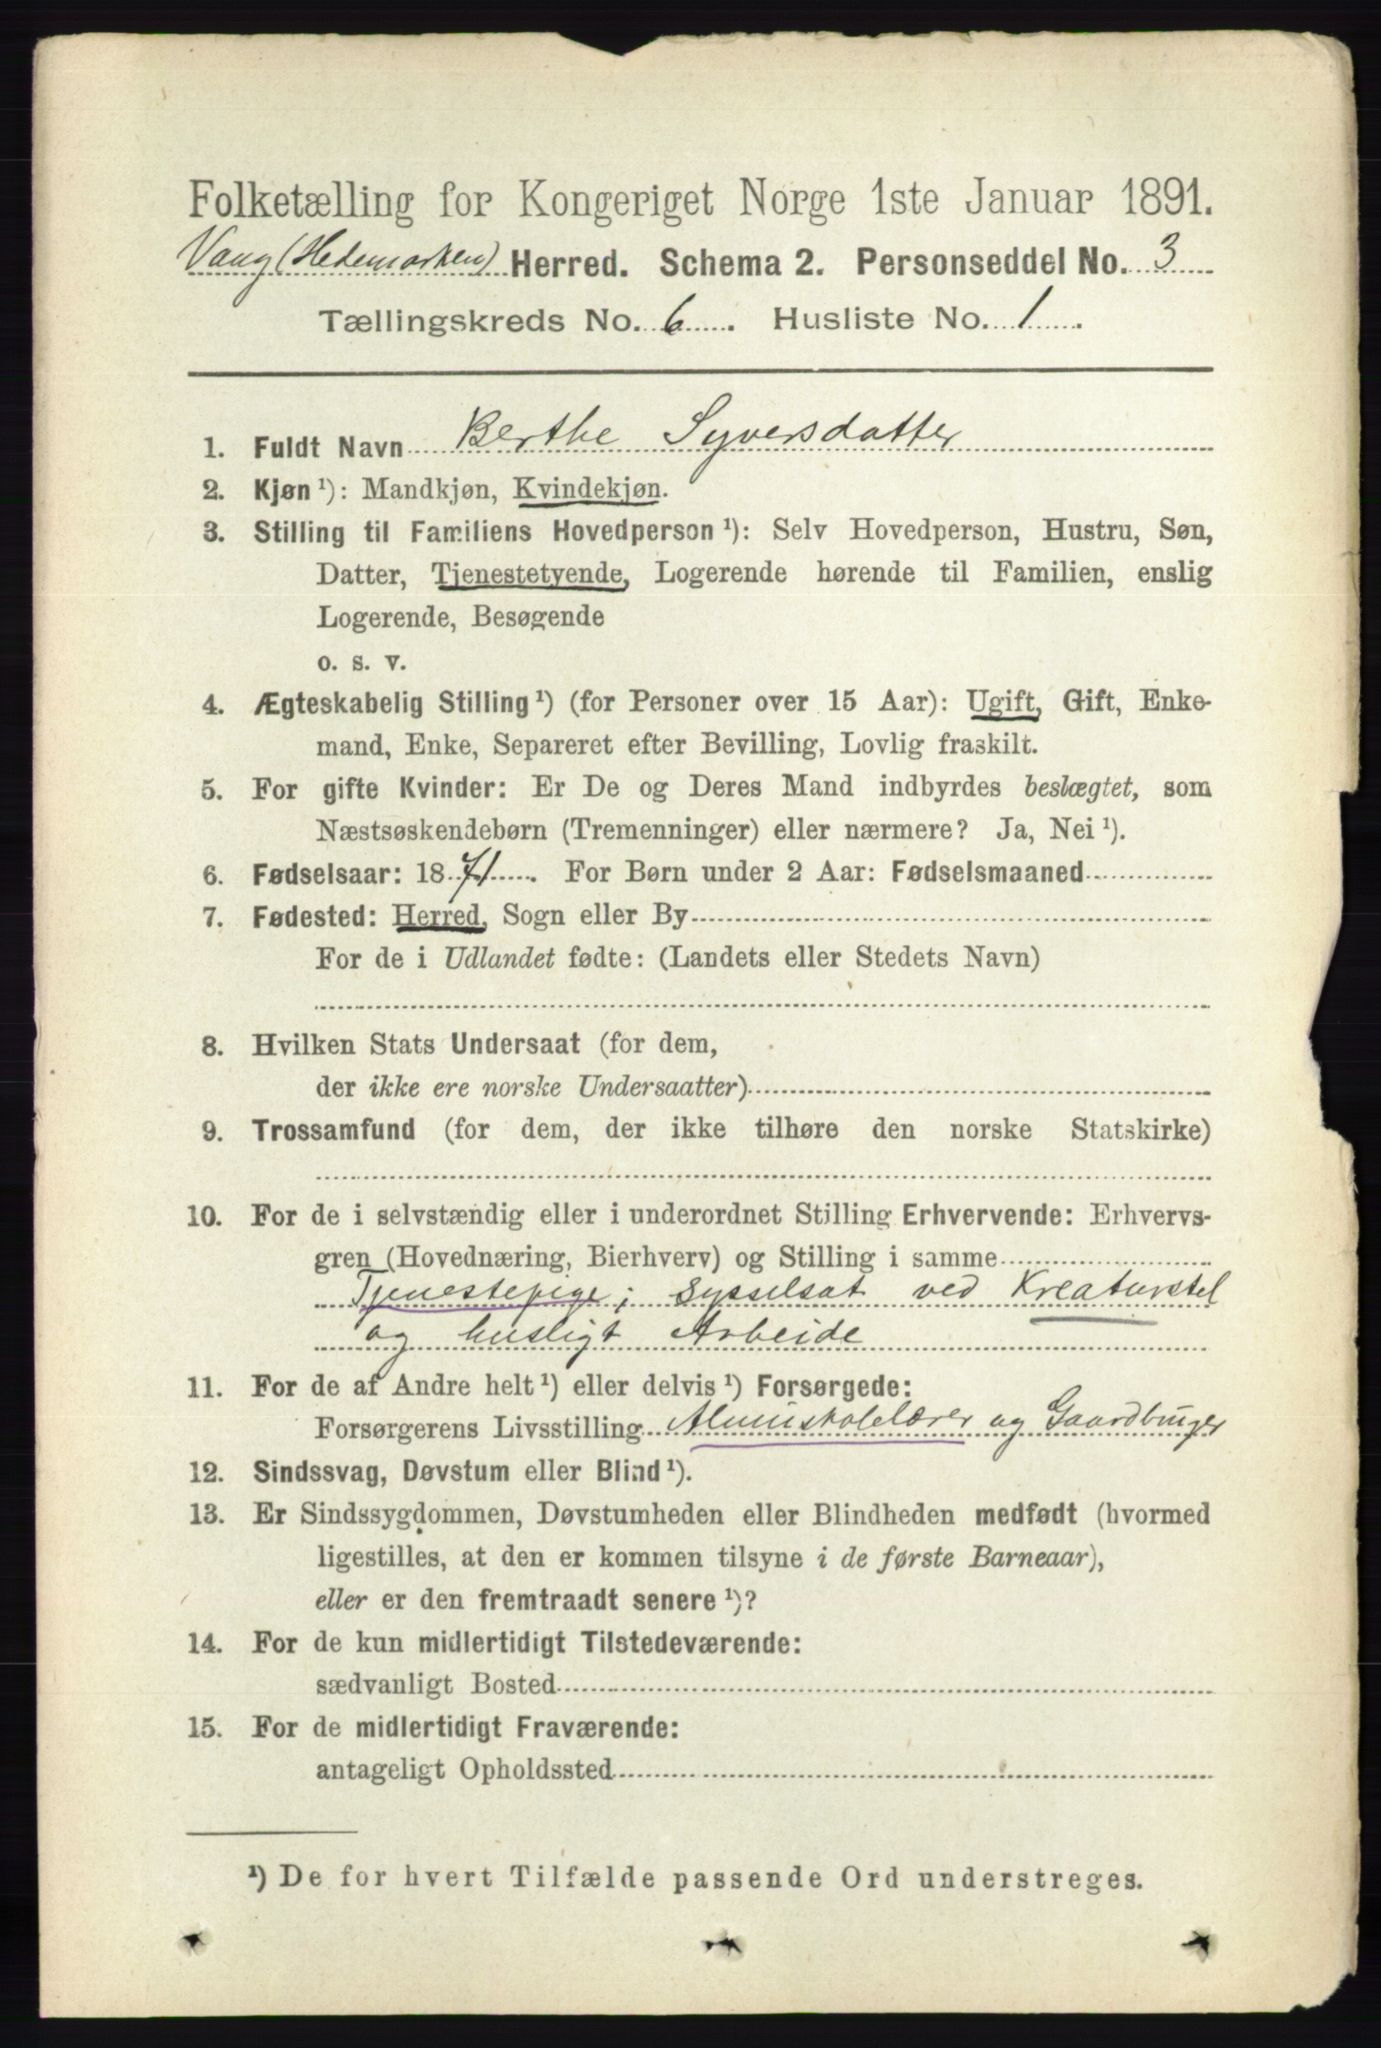 Folketælling for Kongeriget Norge 1ste Januar 1891.
Vang (Hedemarken) Herred. Schema 2. Personseddel No. 3
Tællingskreds No. 6. Husliste No. 1.
1. Fuldt Navn Berthe Syversdatter
2. Kjøn ¹): Mandkjøn, Kvindekjøn.
3. Stilling til Familiens Hovedperson ¹): Selv Hovedperson, Hustru, Søn,
Datter, Tjenestetyende, Logerende hørende til Familien, enslig
Logerende, Besøgende
o. s. v.
4. Ægteskabelig Stilling ¹) (for Personer over 15 Aar): Ugift, Gift, Enke-
mand, Enke, Separeret efter Bevilling, Lovlig fraskilt.
5. For gifte Kvinder: Er De og Deres Mand indbyrdes beslægtet, som
Næstsøskendebørn (Tremenninger) eller nærmere? Ja, Nei ¹).
6. Fødselsaar: 1871. For Børn under 2 Aar: Fødselsmaaned
7. Fødested: Herred, Sogn eller By
For de i Udlandet fødte: (Landets eller Stedets Navn)
8. Hvilken Stats Undersaat (for dem,
der ikke ere norske Undersaatter)
9. Trossamfund (for dem, der ikke tilhøre den norske Statskirke)
10. For de i selvstændig eller i underordnet Stilling Erhvervende: Erhvervs-
gren (Hovednæring, Bierhverv) og Stilling i samme
Tjenestepige; sysselsat ved Kreaturstel
og husligt Arbeide
11. For de af Andre helt ¹) eller delvis ¹) Forsørgede:
Forsørgerens Livsstilling Almuskolelærer og Gaardbruger
12. Sindssvag, Døvstum eller Blind ¹).
13. Er Sindssygdommen, Døvstumheden eller Blindheden medfødt (hvormed
ligestilles, at den er kommen tilsyne i de første Barneaar),
eller er den fremtraadt senere ¹)?
14. For de kun midlertidigt Tilstedeværende:
sædvanligt Bosted
15. For de midlertidigt Fraværende:
antageligt Opholdssted
¹) De for hvert Tilfælde passende Ord understreges.